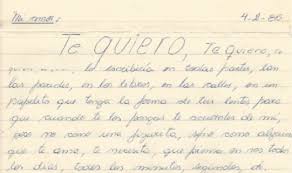 Mi amor: 4-2-86
Te quiero, Te quiero,
lo escribiría en todas partes, en
las paredes, en los libros, en las calles, en un
papelito que tenga la forma de tus lentes para
que cuando te los pongas te acuerdes de mi,
pero no como una figurita, sino como alguien
que te ama, te necesita, que piensa en vos todos
los días, todos los minutos, segundos, d